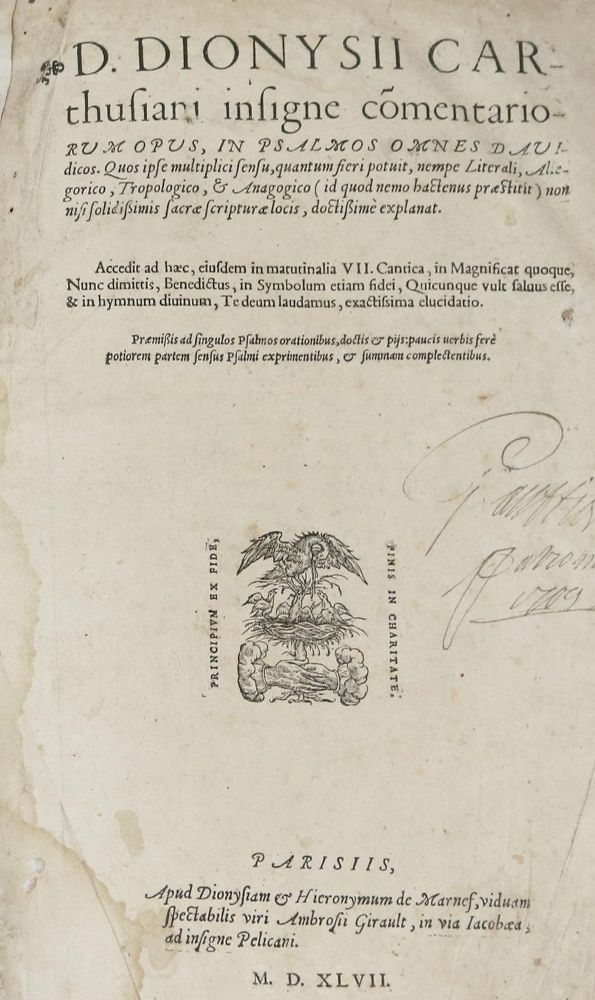 D. DIONYSII CAR-
thusiani insigne cōmentario-
RUM OPUS, IN PSALMOS OMNES DAVI-
dicos. Quos ipse multiplici sensu, quantum fieri potuit, nempe Literali, Ale-
gorico, Tropologico, & Anagogico (id quod nemo hactenus præstitit) non
nisi solidißimis sacræ scripturæ locis, doctißimè explanat.
Accedit ad hæc, eiusdem in matutinalia VII. Cantica, in Magnificat quoque,
Nunc dimittis, Benedictus, in Symbolum etiam fidei, Quicunque vult saluus esse,
& in hymnum diuinum, Te deum laudamus, exactissima elucidatio.
Præmißis ad singulos Psalmos orationibus, doctis & pijs: paucis uerbis ferè
potiorem partem sensus Psalmi exprimentibus, & summam complectentibus.
PRINCIPIVM EX FIDE,
FINIS IN CHARITATE.
PARISIIS,
Apud Dionysiam & Hieronymum de Marnef, viduam
spectabilis viri Ambrosii Girault, in via Iacobæa,
ad insigne Pelicani.
M. D. XLVII.